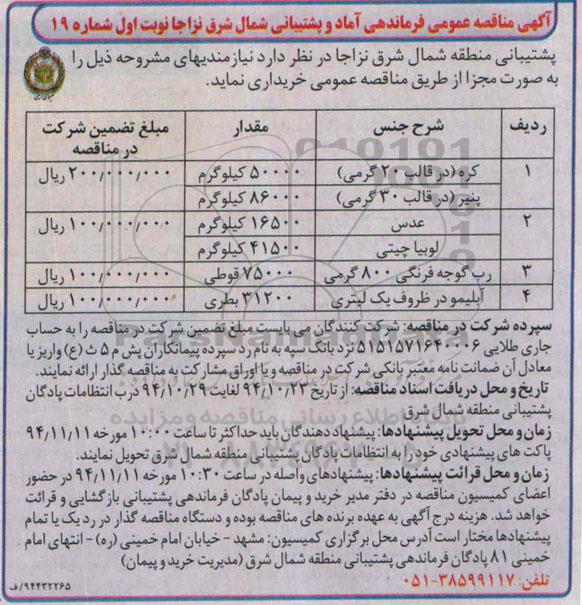 آگهی مناقصه عمومی فرماندهی آماد و پشتیبانی شمال شرق نزاجا نوبت اول شماره ۱۹
پشتیبانی منطقه شمال شرق نزاجا در نظر دارد نیازمندیهای مشروحه ذیل را
به صورت مجزا از طریق مناقصه عمومی خریداری نماید.
ردیف شرح جنس مقدار مبلغ تضمین شرکت
در مناقصه
۱ کره (در قالب ۲۰ گرمی) ۵۰۰۰۰ کیلوگرم ۲۰۰,۰۰۰,۰۰۰ ریال
پنیر (در قالب ۳۰ گرمی) ۸۶۰۰۰ کیلوگرم
۲ عدس ۱۶۵۰۰ کیلوگرم ۱۰۰,۰۰۰,۰۰۰ ریال
لوبیا چیتی ۴۱۵۰۰ کیلوگرم
۳ رب گوجه فرنگی ۸۰۰ گرمی ۷۵۰۰۰ قوطی ۱۰۰,۰۰۰,۰۰۰ ریال
۴ آبلیمو در ظروف یک لیتری ۳۱۲۰۰ بطری ۱۰۰,۰۰۰,۰۰۰ ریال
سپرده شرکت در مناقصه: شرکت کنندگان می بایست مبلغ تضمین شرکت در مناقصه را به حساب
جاری طلایی ۵۱۵۱۵۷۱۶۴۰۰۰۶ نزد بانک سپه به نام رد سپرده پیمانکاران پش م ۵ ث (ع) واریز یا
معادل آن ضمانت نامه معتبر بانکی شرکت در مناقصه و یا اوراق مشارکت به مناقصه گذار ارائه نمایند.
تاریخ و محل دریافت اسناد مناقصه: از تاریخ ۹۴,۱۰,۲۳ لغایت ۹۴,۱۰,۲۹ درب انتظامات پادگان
پشتیبانی منطقه شمال شرق
زمان و محل تحویل پیشنهادها: پیشنهاد دهندگان باید حداکثر تا ساعت ۱۰:۰۰ مورخه ۹۴,۱۱,۱۱
پاکت های پیشنهادی خود را به انتظامات پادگان پشتیبانی منطقه شمال شرق تحویل نمایند.
زمان و محل قرائت پیشنهادها: پیشنهادهای واصله در ساعت ۱۰:۳۰ مورخه ۹۴,۱۱,۱۱ در حضور
اعضای کمیسیون مناقصه در دفتر مدیر خرید و پیمان پادگان فرماندهی پشتیبانی بازگشایی و قرائت
خواهد شد. هزینه درج آگهی به عهده برنده های مناقصه بوده و دستگاه مناقصه گذار در رد یک یا تمام
پیشنهادها مختار است آدرس محل برگزاری کمیسیون: مشهد - خیابان امام خمینی (ره) - انتهای امام
خمینی ۸۱ پادگان فرماندهی پشتیبانی منطقه شمال شرق (مدیریت خرید و پیمان)
تلفن: ۳۸۵۹۹۱۱۷-۰۵۱
۹۴۴۳۲۲۶۵/ف